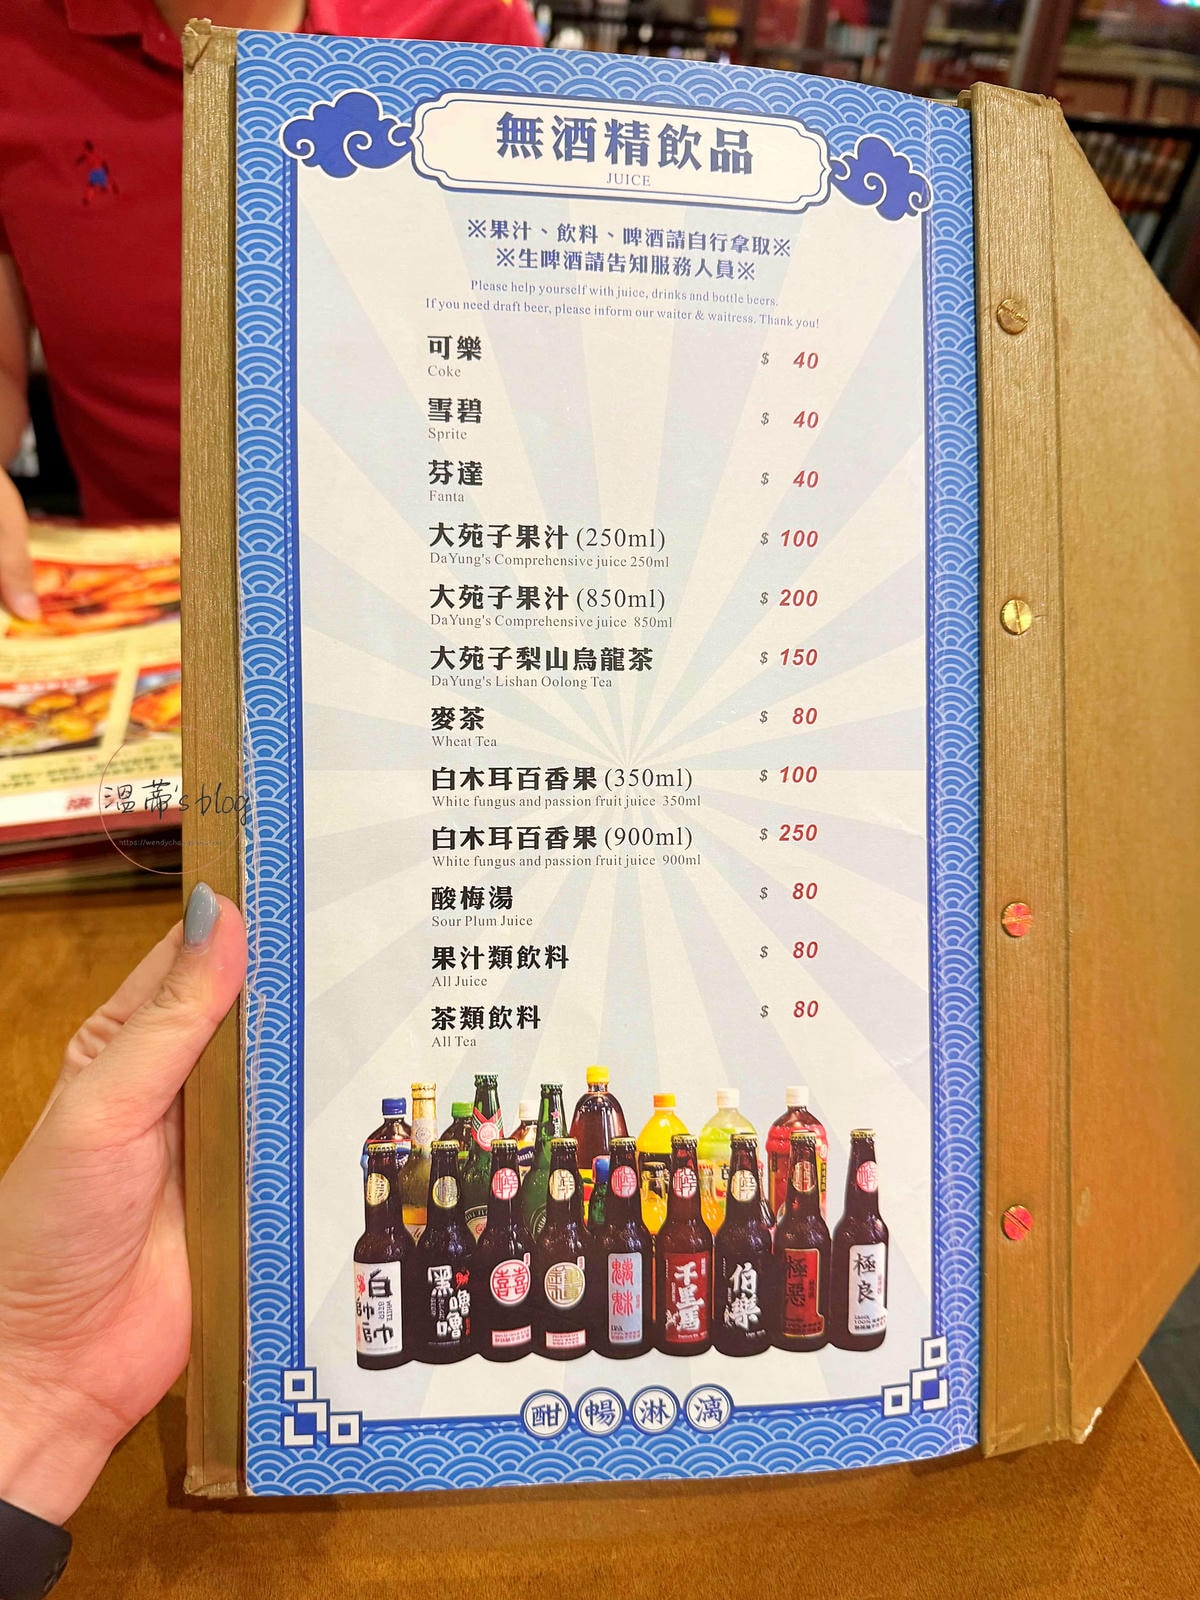 無酒精飲品
JUICE
※果汁、飲料、啤酒請自行拿取※
※生啤酒請告知服務人員※
Please help yourself with juice, drinks and bottle beers.
If you need draft beer, please inform our waiter & waitress. Thank you!
可樂 $ 40
Coke
雪碧 $ 40
Sprite
芬達 $ 40
Fanta
大苑子果汁 (250ml) $ 100
DaYung's Comprehensive juice 250ml
大苑子果汁 (850ml) $ 200
DaYung's Comprehensive juice 850ml
大苑子梨山烏龍茶 $ 150
DaYung's Lishan Oolong Tea
麥茶 $ 80
Wheat Tea
白木耳百香果 (350ml) $ 100
White fungus and passion fruit juice 350ml
白木耳百香果 (900ml) $ 250
White fungus and passion fruit juice 900ml
酸梅湯 $ 80
Sour Plum Juice
果汁類飲料 $ 80
All Juice
茶類飲料 $ 80
All Tea
溫蒂's blog
白帥帥
黑嚕嚕
囍
魑魅
千里馬
伯樂
極惡
極良
酣暢淋漓